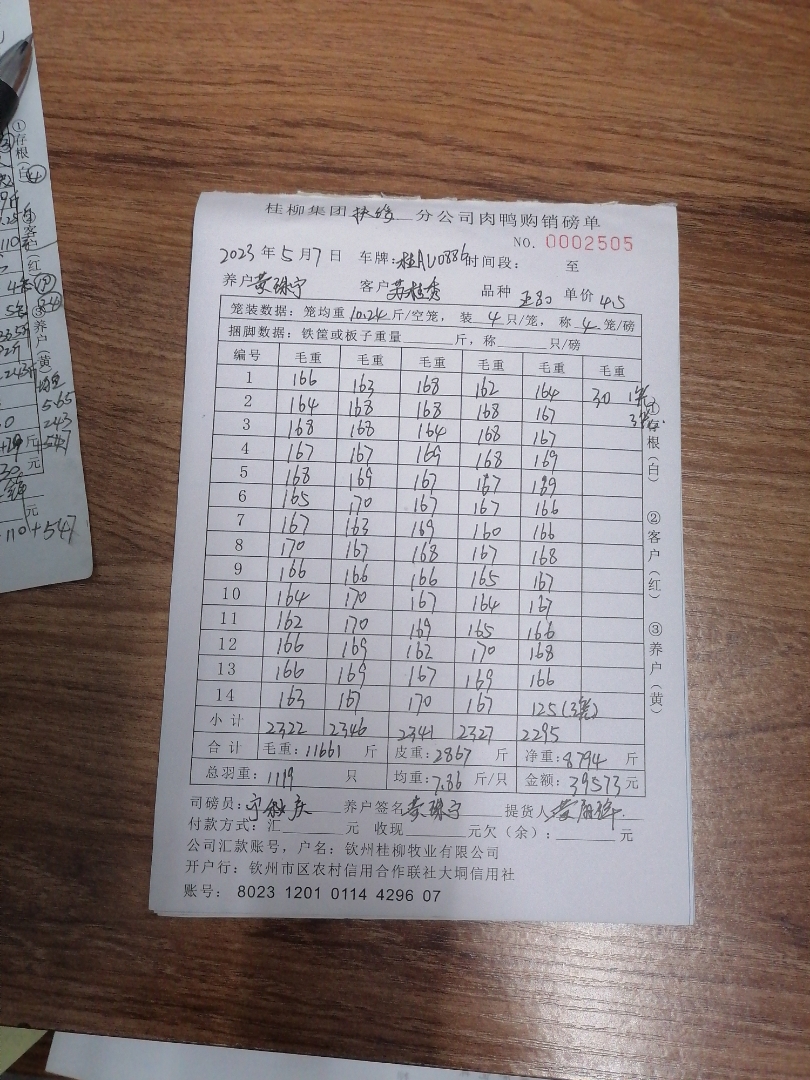 桂柳集团扶绥分公司肉鸭购销磅单
NO. 0002505
2023年5月7日 车牌:桂AU0886 时间段: 至
养户 黄珠宁 客户 苏桂秀 品种 单价 4.5
笼装数据: 笼均重10.24斤/空笼, 装4只/笼, 称4笼/磅
捆脚数据: 铁筐或板子重量 斤, 称 只/磅
编号 毛重 毛重 毛重 毛重 毛重 毛重
1 166 163 168 162 164 30 1笼
2 164 168 168 168 167 3只
3 168 168 164 168 167
4 167 167 169 168 169
5 168 169 167 167 169
6 165 170 167 167 166
7 167 163 169 160 166
8 170 167 168 167 168
9 166 166 166 165 167
10 164 170 167 164 167
11 162 170 169 165 166
12 166 169 162 170 168
13 166 169 167 169 166
14 163 167 170 167 125(3笼)
小计 2322 2346 2341 2327 2295
合计 毛重:11661斤 皮重:2867斤 净重:8794斤
总羽重:1119只 均重:7.86斤/只 金额:39573元
司磅员: 养户签名 黄珠宁 提货人
付款方式: 汇 元 收现 元欠(余): 元
公司汇款账号, 户名: 钦州桂柳牧业有限公司
开户行: 钦州市区农村信用合作联社大垌信用社
账号: 8023 1201 0114 4296 07
①存根(白)
②客户(红)
③养户(黄)
①存根(白)
②客户(红)
③养户(黄)
5.65
243
+547
元
元
110+547